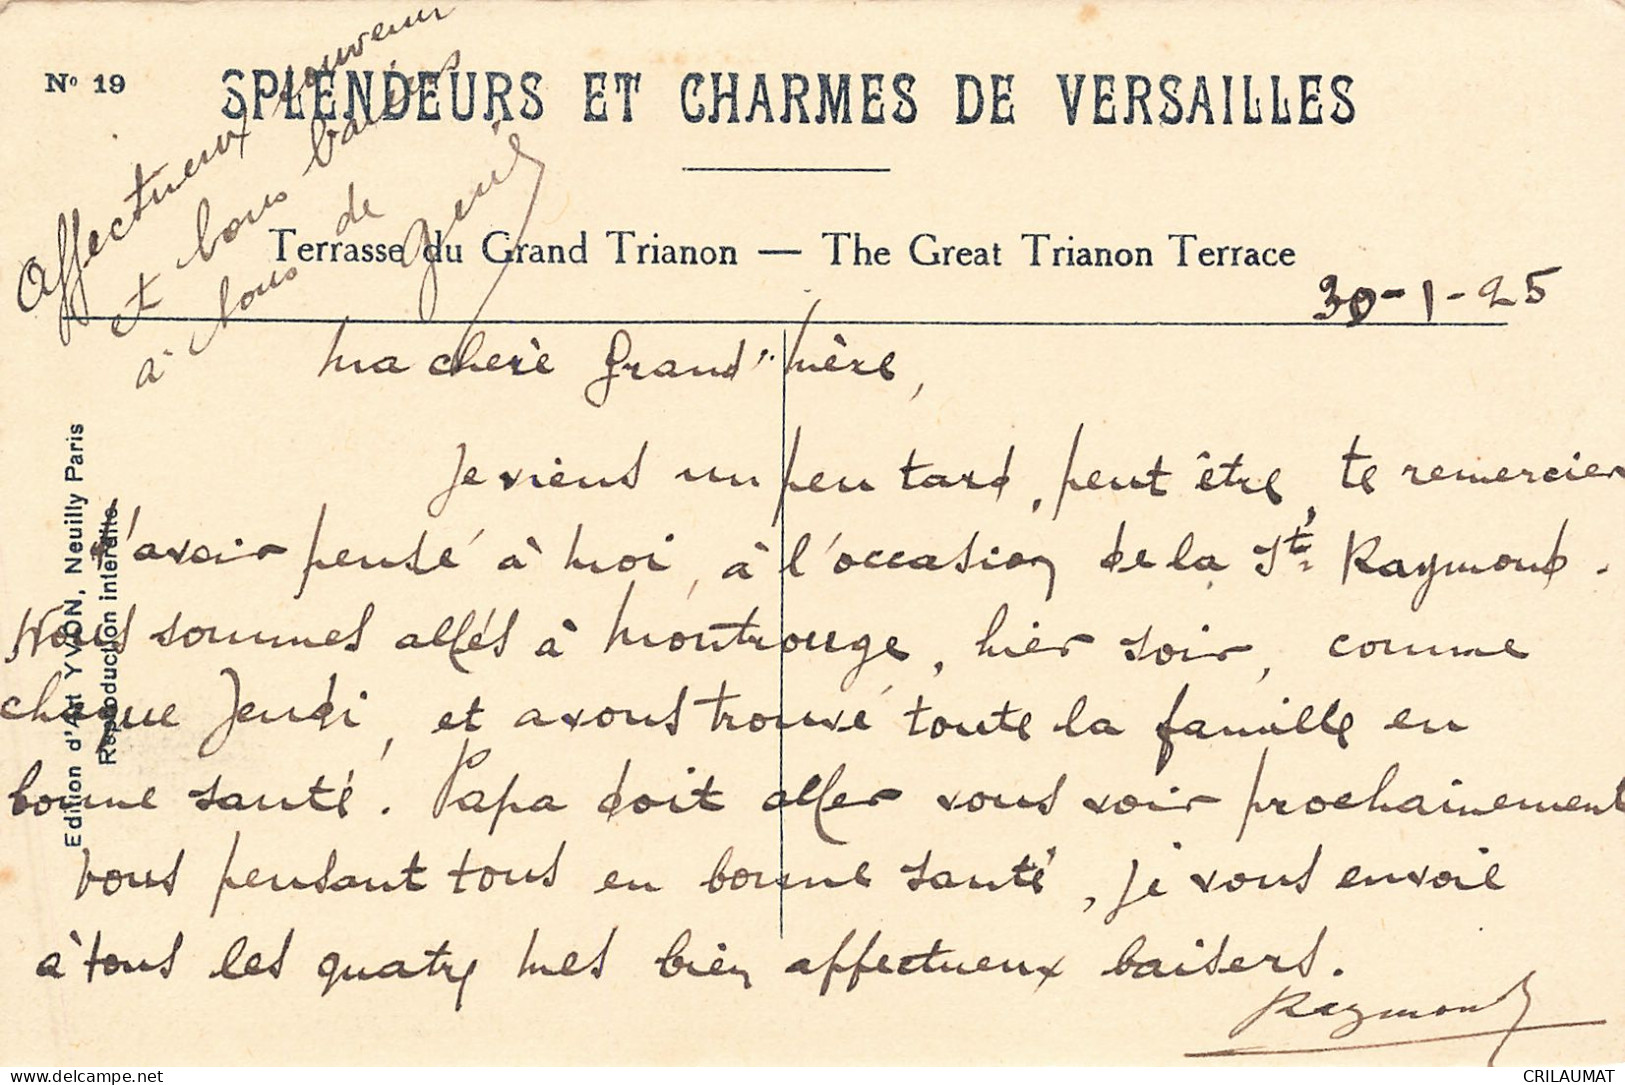 N° 19
SPLENDEURS ET CHARMES DE VERSAILLES
Terrasse du Grand Trianon — The Great Trianon Terrace
Affectueux souvenir
et bons baisers
à tous de
30-1-25
Ma chère Grand'Mère,
Je viens un peu tard, peut être, te remercier
d'avoir pensé à moi, à l'occasion de la St Raymond.
Nous sommes allés à Montrouge, hier soir, comme
chaque Jeudi, et avons trouvé toute la famille en
bonne santé. Papa doit aller vous voir prochainement
Vous pensant tous en bonne santé, je vous envoie
à tous les quatre mes bien affectueux baisers.
Raymond
Edition d'Art YVON, Neuilly Paris
Reproduction interdite.
delcampe.net
CRILAUMAT